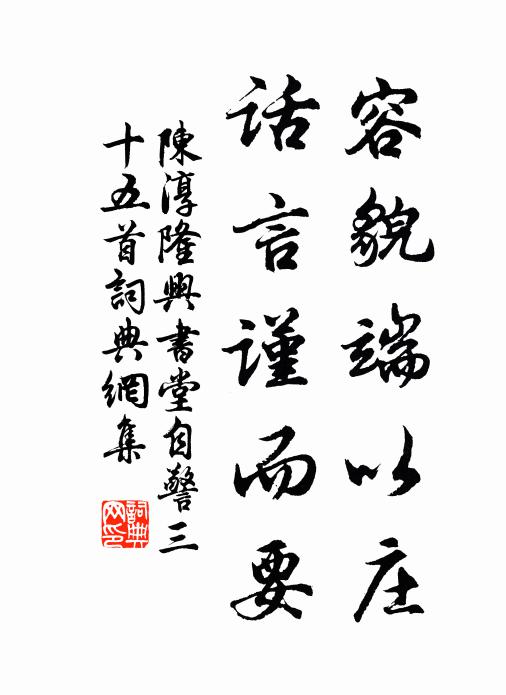 容貌端以庄
话言谨而要
陳淳隆興書堂自警三
十五首詞典網集
詞典
网印